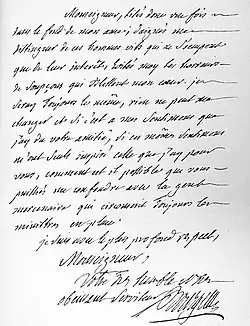 Monseigneur, lisés donc une fois
dans le fond de mon ame; daignés me
distinguer de ces hommes vils qui ne s'occupent
que de leur interêts, evités moy les horreurs
de soupçon qui flétrissent mon coeur. je
serai toujours le même, rien ne peut me
changer et si c'est a mes Sentimens que
j'ay du votre amitié, si ces mêmes Sentimens
m'ont seuls inspiré celle que j'ay pour
vous, comment est il possible que vous
puissiés me confondre avec la gent
mercenaire qui environnent toujours les
ministres en place
je suis avec le plus profond respect,
Monseigneur,
Votre tres humble et tres
obeissant serviteur